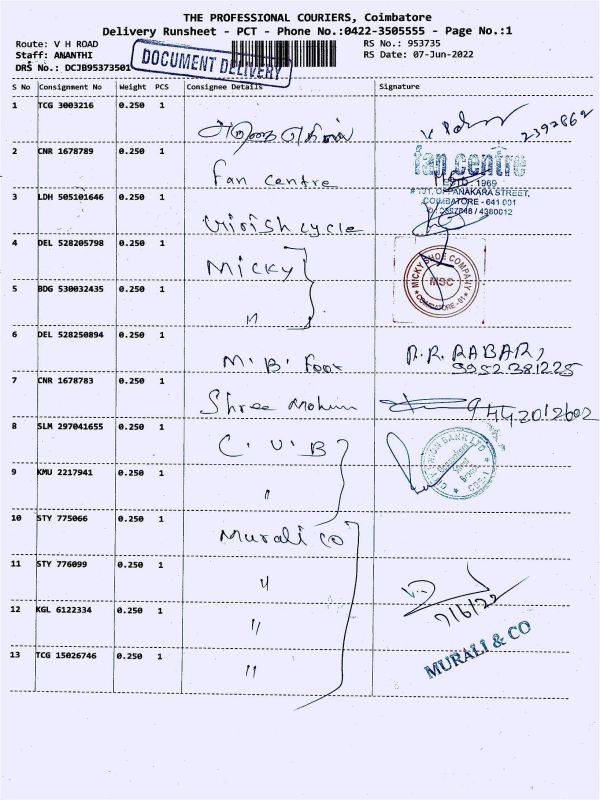 THE PROFESSIONAL COURIERS, Coimbatore
Delivery Runsheet - PCT - Phone No.:0422-3505555 - Page No.:1
Route: V H ROAD
RS No.: 953735
Staff: ANANTHI
RS Date: 07-Jun-2022
DRS No.: DCJB95373501
DOCUMENT DELIVERY
S No Consignment No Weight PCS Consignee Details Signature
1 TCG 3003216 0.250 1
2392862
2 CNR 1678789 0.250 1 Fan Centre
fan centre
ESTD : 1969
# 131, OPPANAKARA STREET,
COIMBATORE - 641 001
/ 4380012
3 LDH 505101646 0.250 1 cycle
4 DEL 528205798 0.250 1 Micky
MICKY SHOE COMPANY
MSC
COIMBATORE -01
5 BDG 530032435 0.250 1 "
6 DEL 528250894 0.250 1 M. B. Foot R.R. RABARI
9952381225
7 CNR 1678783 0.250 1 Shree Mohini
8 SLM 297041655 0.250 1 C. U. B
CITY UNION BANK LTD
9 KMU 2217941 0.250 1 "
10 STY 775066 0.250 1 Murali co
11 STY 776099 0.250 1 "
7/6/22
12 KGL 6122334 0.250 1 "
MURALI & CO
13 TCG 15026746 0.250 1 "